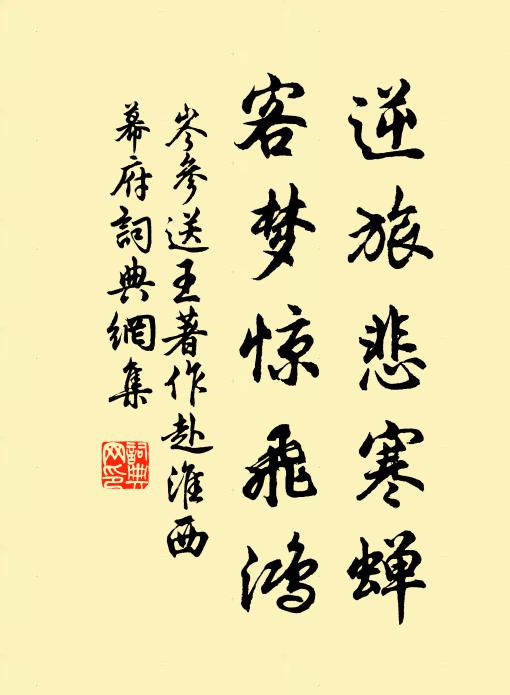 逆旅悲寒蝉
客梦惊飛鸿
岑參送王著作赴淮西
幕府詞典網集
詞典
网印